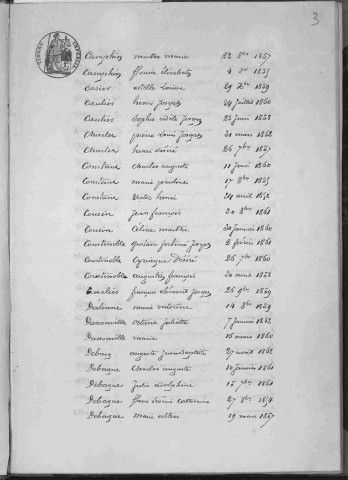 3
TIMBRE IMPERIAL
Campshin marthe marie 22 8bre 1857
Campshin Louise Elisabeth 4 1855
Casier estelle Louise 29 Xbre 1859
Caulier henri joseph 24 juillet 1860
Caulier Sophie adèle joseph 23 juin 1858
Charles pierre Louis joseph 31 mars 1862
Charles henri désiré 26 7bre 1857
Constant Charles auguste 11 juin 1860
Constant marie pauline 17 8bre 1855
Constant Victor henri 24 avril 1852
Cousin jean françois 20 8bre 1861
Cousin Céline marthe 30 janvier 1860
Courtenoble gustave fortuné joseph 2 février 1861
Courtenoble Cyriaque Désiré 26 7bre 1860
Courtenoble augustin françois 30 août 1852
Cuvelier françois Edouard joseph 26 9bre 1859
Dalenne marie victorine 14 8bre 1859
Dassonville octavie juliette 7 janvier 1862
Dassonville marie 15 mars 1860
Debacq auguste jean Baptiste 27 août 1862
Debacque Charles auguste 10 janvier 1861
Debacque Julie adolphine 15 7bre 1861
Debacque Catherine 27 8bre 1854
Debacque marie esther 19 mars 1857